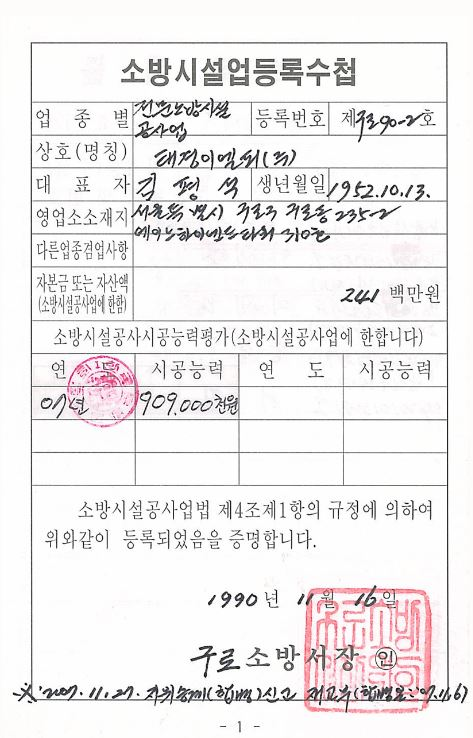 소방시설업등록수첩
업 종 별 전문소방시설 공사업 등록번호 제구로90-2호
상호(명칭) 태정이엘피(주)
대 표 자 김 평 석 생년월일 1952.10.13.
영업소소재지 서울특별시 구로구 구로동 235-2
에이스하이엔드타워 310호
다른업종겸업사항
자본금 또는 자산액
(소방시설공사업에 한함) 241 백만원
소방시설공사시공능력평가(소방시설공사업에 한합니다)
연 도 시공능력 연 도 시공능력
07년 909,000천원
소방시설공사업법 제4조제1항의 규정에 의하여
위와같이 등록되었음을 증명합니다.
1990 년 11 월 16 일
구로소방서장 ㊞
※ 2007.11.27. 지위승계(합병)신고 재교부(합병일: 07.11.6)
- 1 -